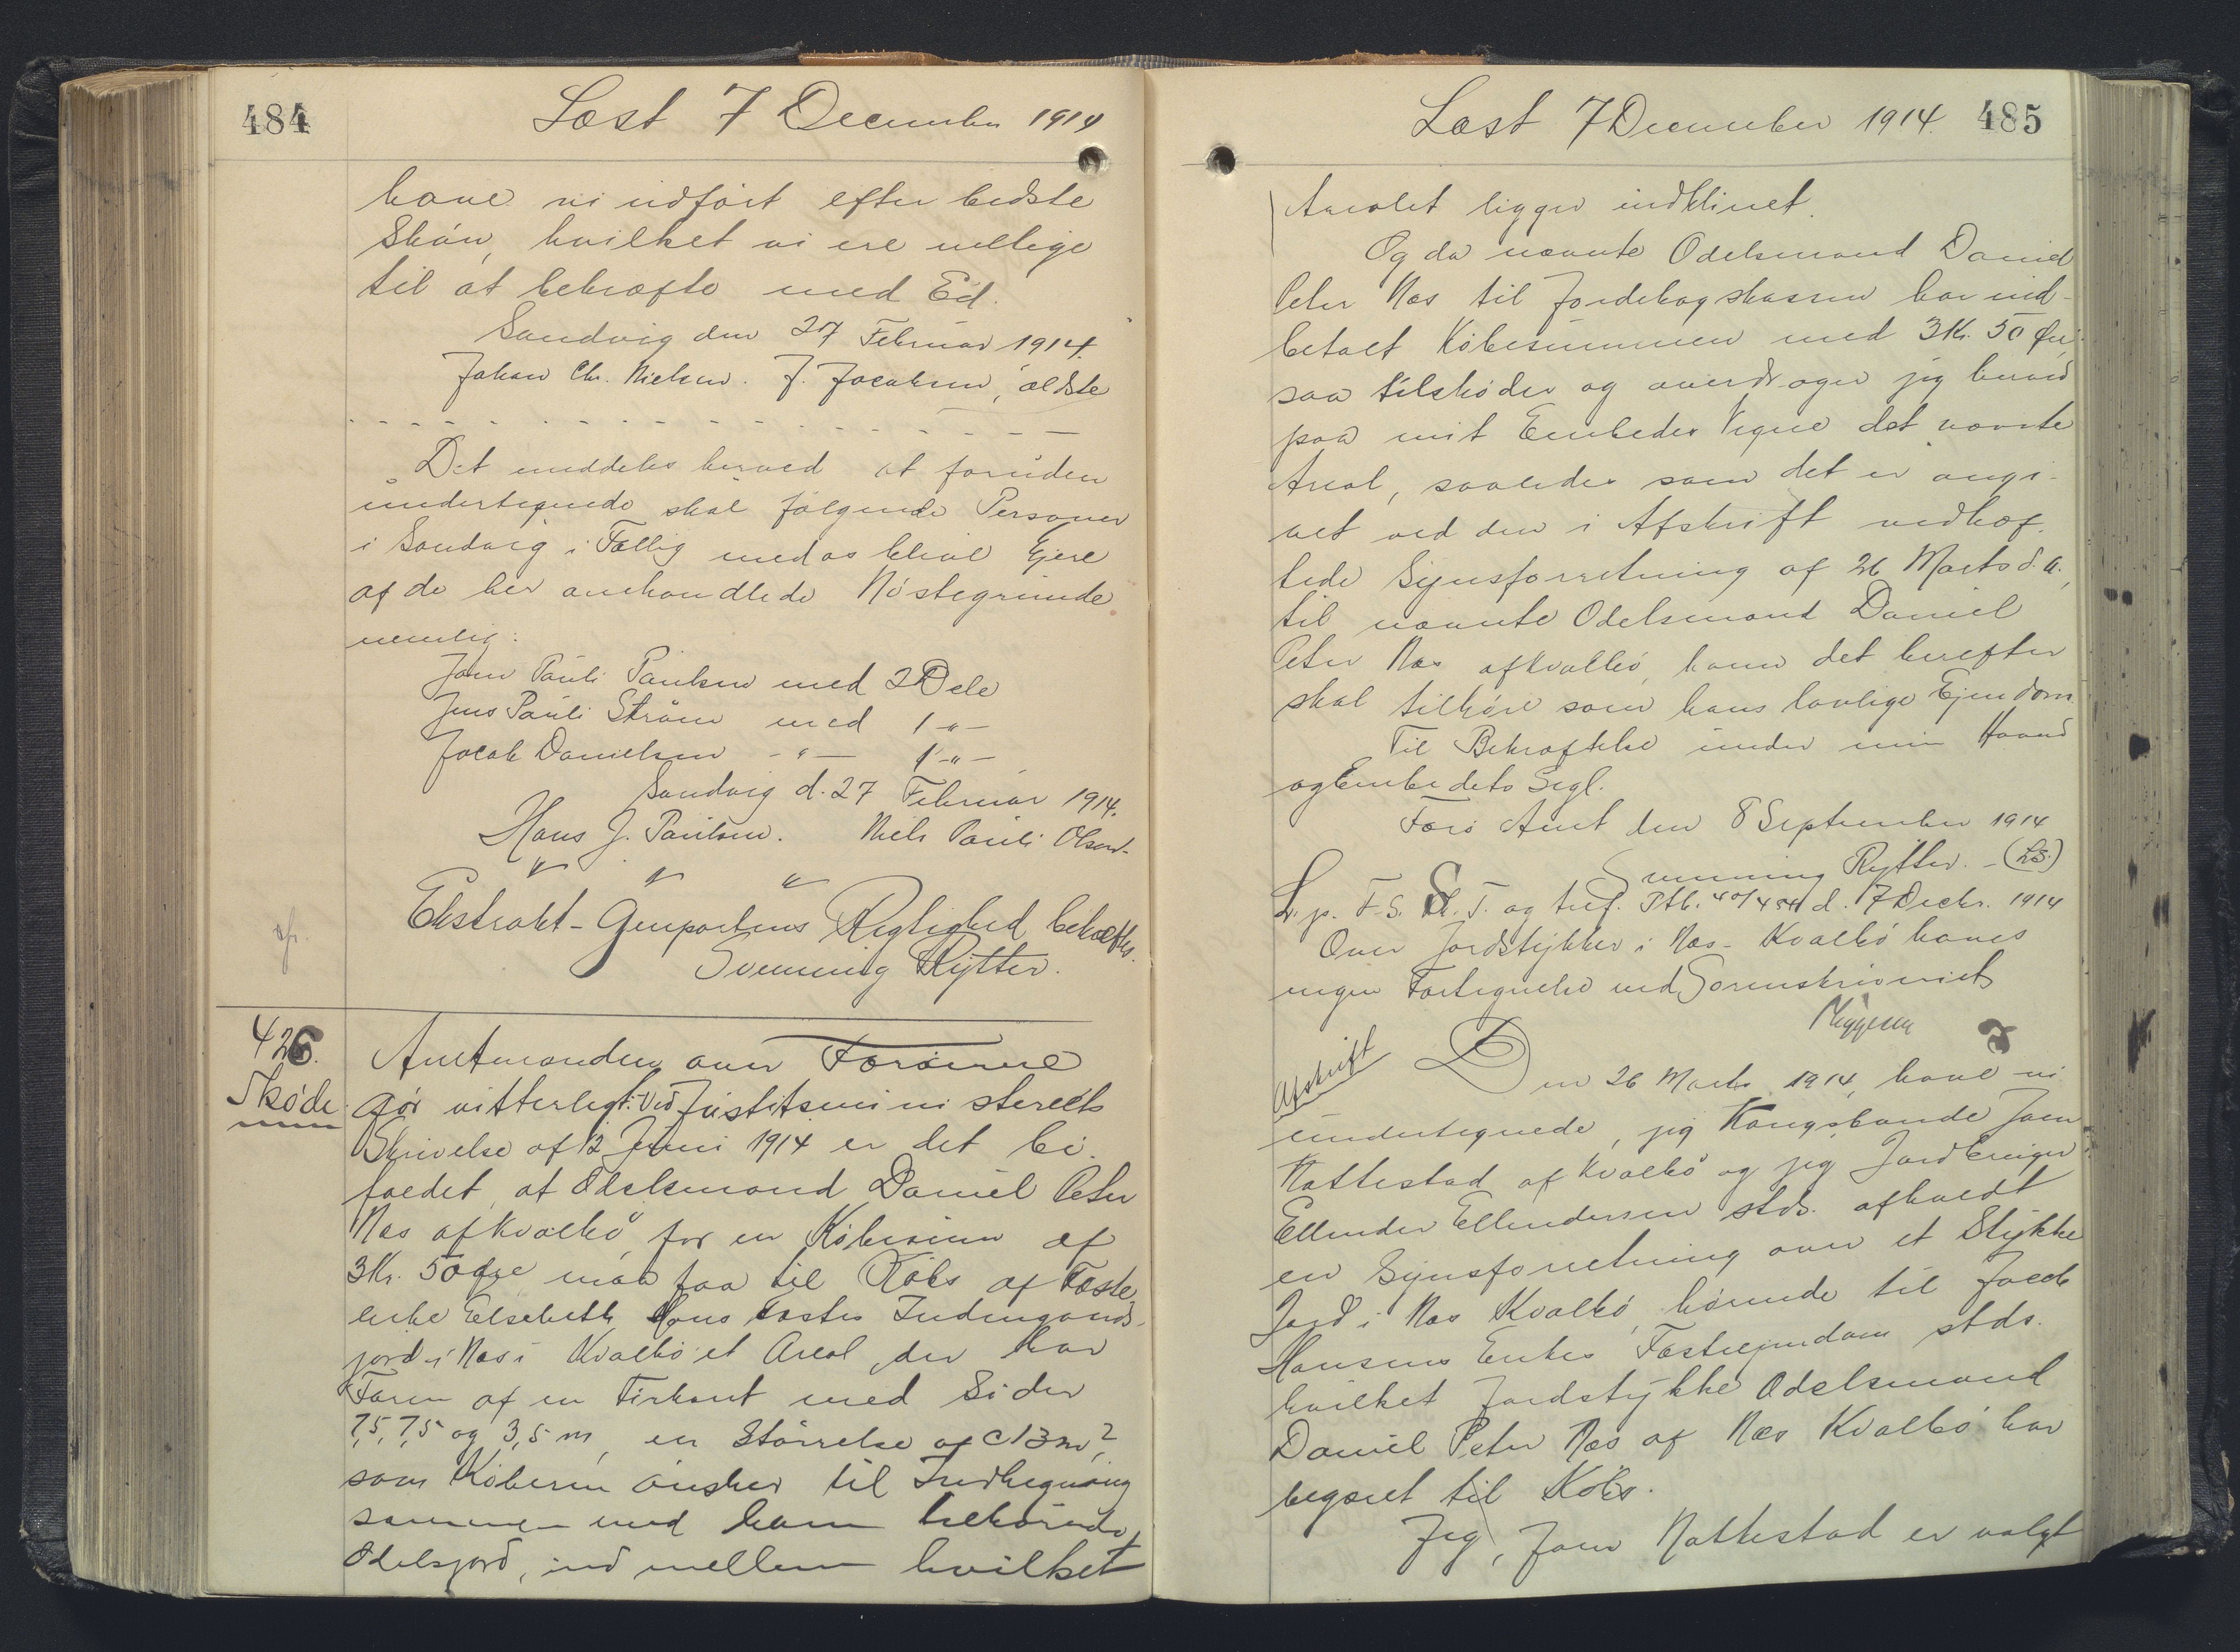 484
Læst 7 December 1914
have vi udført efter bedste
Skøn, hvilket vi ere villige
til at bekræfte med Ed.
Sandvig den 27 Februar 1914.
Johan Chr. Nielsen. J. Jacobsen, ældste
Det meddeles herved at foruden
undertegnede skal følgende Personer
i Sandvig i Fællig med os blive Ejere
af de her omhandlede Nøstegrunde
nemlig:
Joen Pauli Paulsen med 2 Dele
Jens Pauli Strøm med 1 -"-
Jacob Danielsen -"- 1 -"-
Sandvig d. 27 Februar 1914.
Hans J. Paulsen. Niels Pauli Olsen.
" " "
Ekstrakt-Genpartens Rigtighed bekræftes.
Svenning Rytter.
426.
Skøde
Amtmanden over Færøerne
gør vitterligt: Ved Justitsministeriets
Skrivelse af 12 Juni 1914 er det bi-
faldet, at Odelsmand Daniel Peter
Næs af Kvalbø, for en Købesum af
3 Kr. 50 Øre maa faa til Købs af Fæste
enke Elsebeth Hans Fæstes Indengards-
jord i Næs i Kvalbø et Areal der har
Form af en Firkant med Sider
7,5, 7,5 og 3,5 m, en Størrelse af c 13 m²,
som Køberen ønsker til Indhegning
sammen med ham tilhørende
Odelsjord, ind mellem hvilket
Læst 7 December 1914. 485
Arealet ligger indklinet.
Og da nævnte Odelsmand Daniel
Peter Næs til Jordebogskassen har ind-
betalt Købesummen med 3 Kr. 50 Øre,
saa tilskøder og overdrager jeg herved
paa mit Embedes Vegne det nævnte
Areal, saaledes som det er angi-
vet ved den i Afskrift vedhæf-
tede Synsforretning af 26 Marts d. A.,
til nævnte Odelsmand Daniel
Peter Næs af Kvalbø, hvem det herefter
skal tilhøre som hans lovlige Ejendom.
Til Bekræftelse under min Haand
og Embedets Segl.
Færø Amt den 8 September 1914
Svenning Rytter. - (L.S.)
L. p. F. S. T. og tref. Ptb. d. 7 Decbr. 1914
Over Jordstykker i Næs - Kvalbø haves
ingen Fortegnelse ved Sorenskriveriet
Afskrift
Den 26 Marts 1914, have vi
undertegnede, jeg Kongsbonde Joen
Nattestad af Kvalbø og jeg Jordbruger
Ellender Ellendersen stds. afholdt
en Synsforretning over et Stykke
Jord i Næs Kvalbø, hørende til Jacob
Hansens Enkes Fæsteejendom stds.
hvilket Jordstykke Odelsmand
Daniel Peter Næs af Næs Kvalbø har
begæret til Købs.
Jeg, Joen Nattestad er valgt